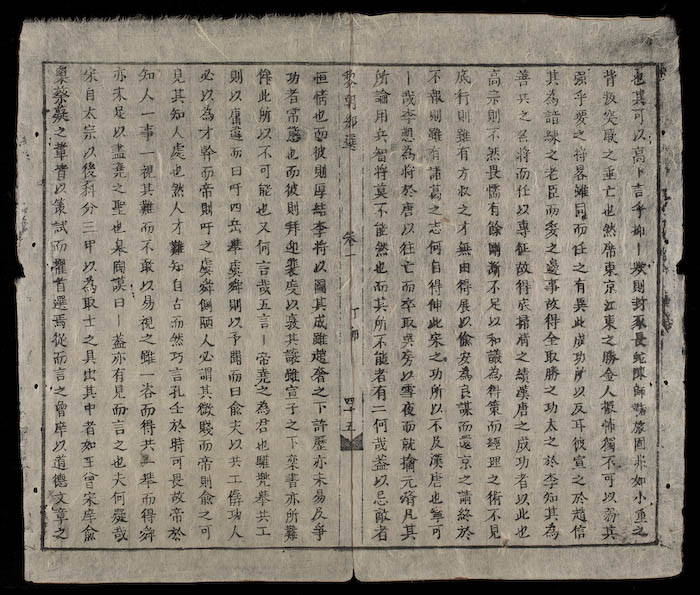 也其可以高卜言乎抑丨敗則封豕長蛇陳師鞠旅固非如小醜之
背叛突厥之垂亡也然席東京江東之勝金人震怖獨不可以為其
強乎要之將畧雖同而任之有異此成功所以反耳彼宣之於趙信
其為諳練之老臣而委之邊事故得全取勝之功太之於李知其為
善兵之名將而任以專征故得底掃清之績漢唐之成功者以此也
高宗則不然畏懦有餘剛斷不足以和議為得策而經理之術不見
底行則雖有方叔之才無由得展以偷安為良謀而還京之請終於
不報則雖有諸葛之志何自得伸此宋之功所以不及漢唐也寧可
丨哉李愬為將於唐以往亡而卒取吳房以雪夜而就擒元濟凡其
所論用兵智將莫不能然也而其所不能者有二何哉蓋以忌敵者
黎朝鄉選 卷一 四十五
恒情也而彼則厚結李將以圖其成雖趙奢之下許歷亦未易及爭
功者常態也而彼則拜迎裴度以其讓雖宣子之下欒書亦所難
此所以不可能也又何言哉五言丨帝堯之為君也驩兜舉共工
則以庸違而曰吁四岳舉虞舜則以予聞而曰俞夫以共工僝功人
必以為才幹而帝則吁之虞舜側陋人必謂其微賤而帝則俞之可
見其知人處也然人才難知自古而然巧言孔壬於時可畏故帝於
知人一事一視其難而不敢以易視之雖一咨而得共一舉而得舜
亦未足以盡堯之聖也皋陶謨曰丨蓋亦有見而言之也夫何疑哉
宋自太宗以後科分三甲以為取士之具出其中者如王曾宋庠俞
臯蔡薿之輩皆以策試而擢首選焉從而言之曾庠以道德文章之